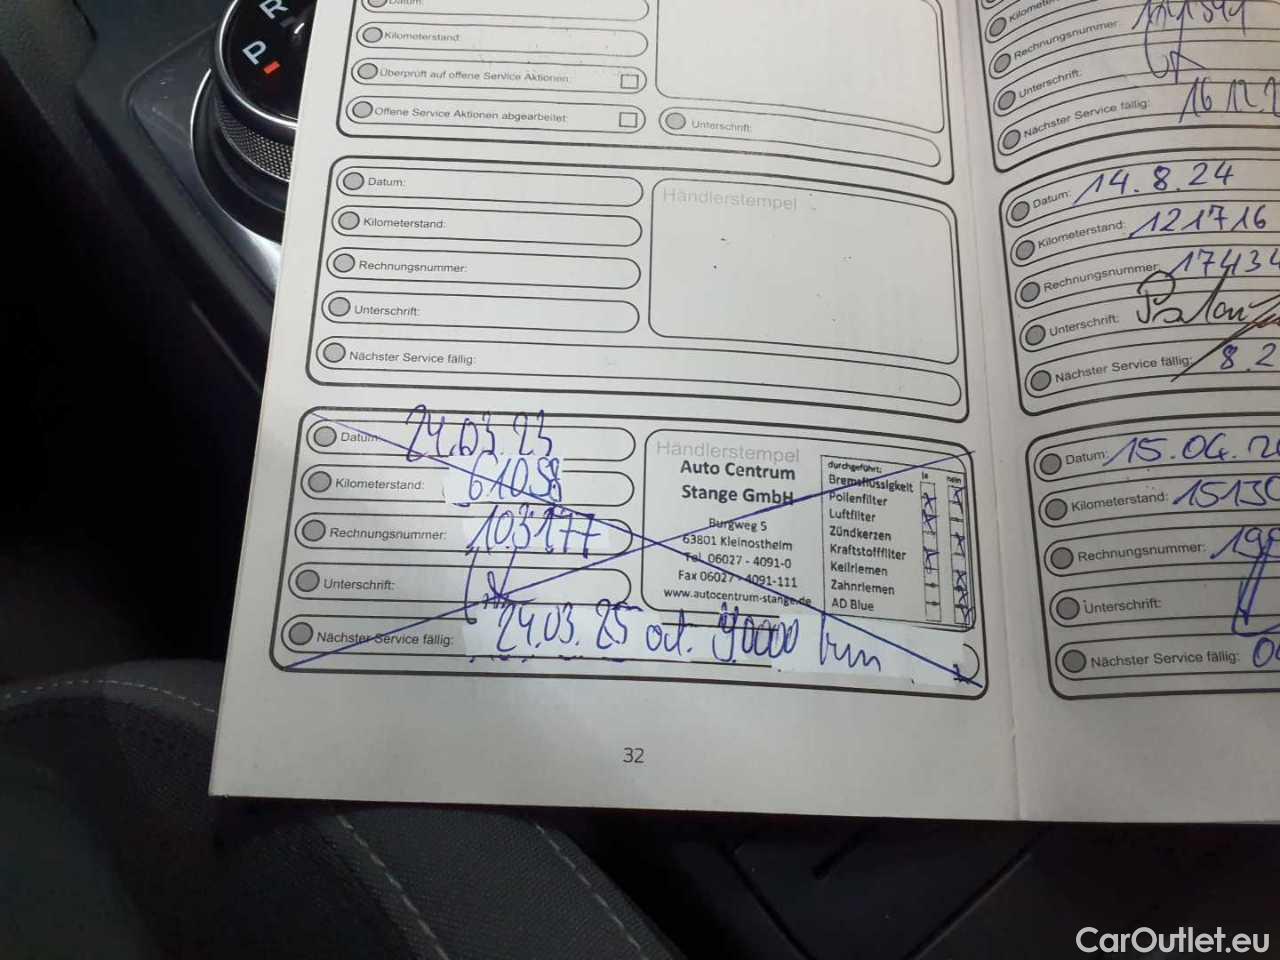 P
R
Datum:
Kilometerstand:
Überprüft auf offene Service Aktionen:
Offene Service Aktionen abgearbeitet:
Unterschrift:
Datum:
Kilometerstand:
Rechnungsnummer:
Unterschrift:
Nächster Service fällig:
Händlerstempel
Datum: 24.03.23
Kilometerstand: 61058
Rechnungsnummer: 103177
Unterschrift:
Nächster Service fällig: 24.03.25 od. 90000 km
Händlerstempel
Auto Centrum
Stange GmbH
Burgweg 5
63801 Kleinostheim
Tel. 06027 - 4091-0
Fax 06027 - 4091-111
www.autocentrum-stange.de
durchgeführt: ja nein
Bremsflüssigkeit
Pollenfilter
Luftfilter
Zündkerzen
Kraftstofffilter
Keilriemen
Zahnriemen
AD Blue
32
Rechnungsnummer:
Unterschrift:
Nächster Service fällig: 16.12.2
Datum: 14.8.24
Kilometerstand: 121716
Rechnungsnummer: 17434
Unterschrift:
Nächster Service fällig: 8.2
Datum: 15.04.20
Kilometerstand: 15130
Rechnungsnummer: 199
Unterschrift:
Nächster Service fällig: 0
CarOutlet.eu